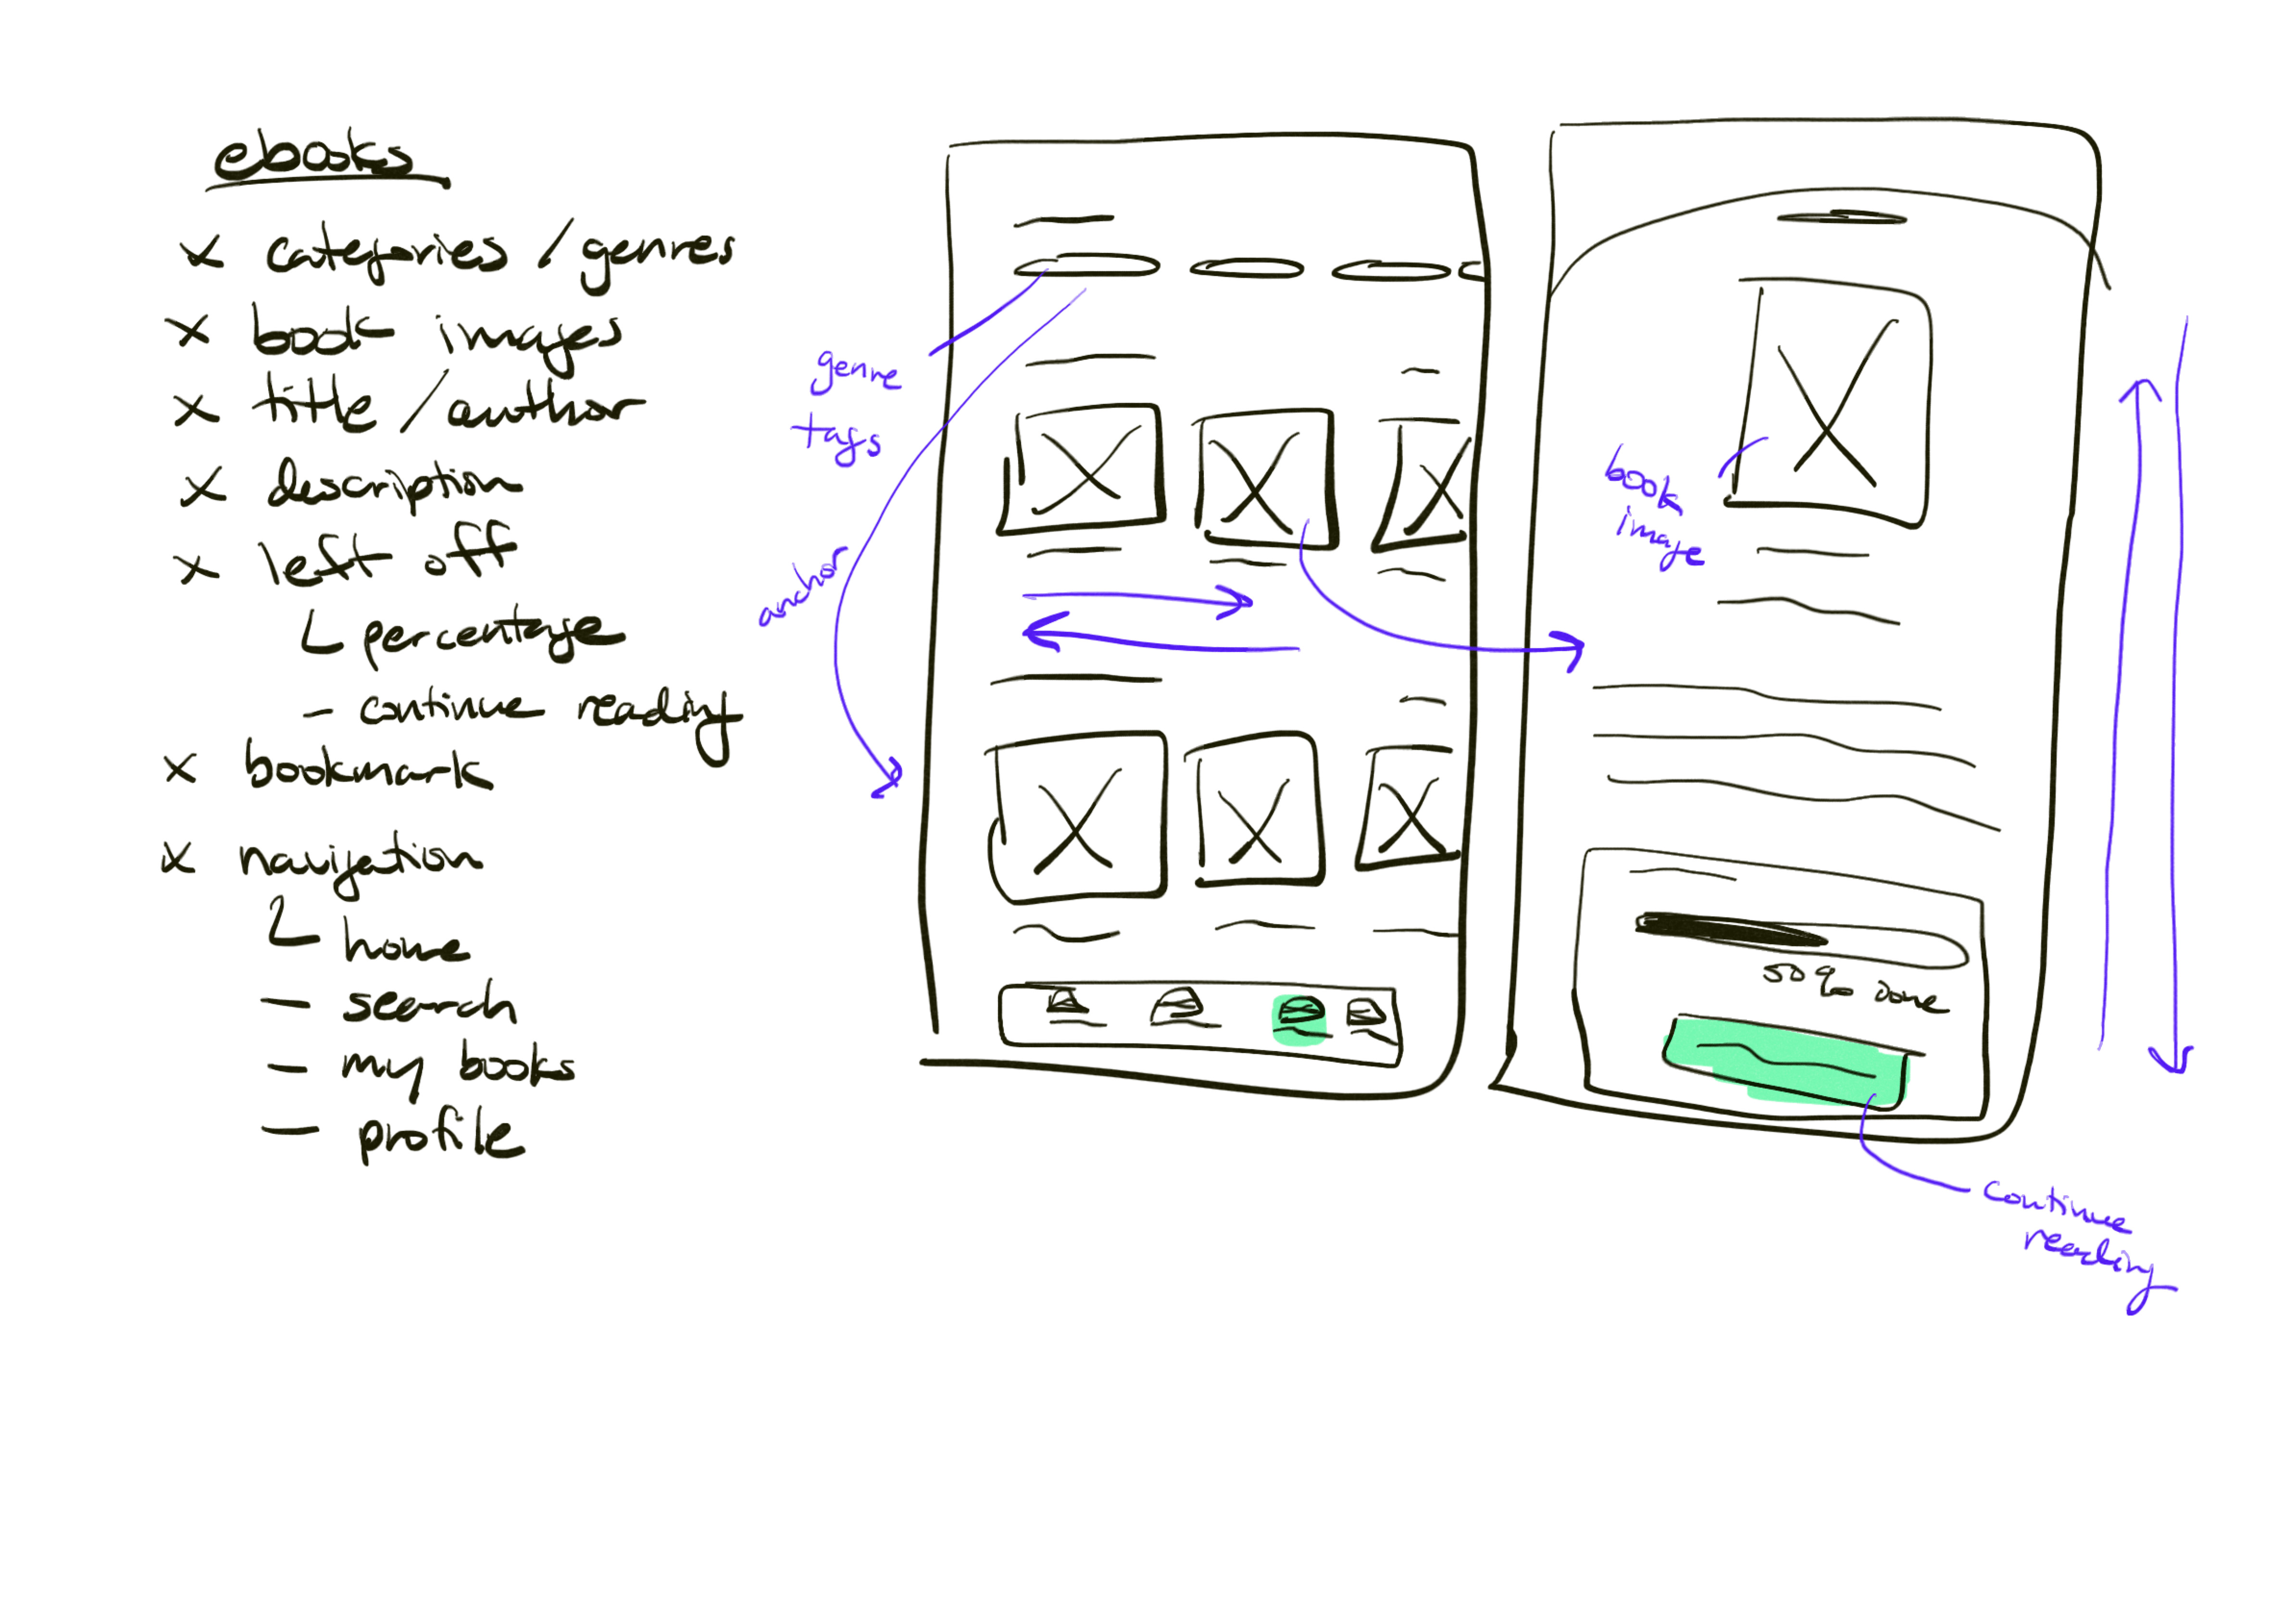 ebooks
x categories / genres
x book images
x title / author
x description
x left off
percentage
- continue reading
x bookmark
x navigation
home
- search
- my books
- profile
genre
tags
anchor
book
image
50% done
continue
reading